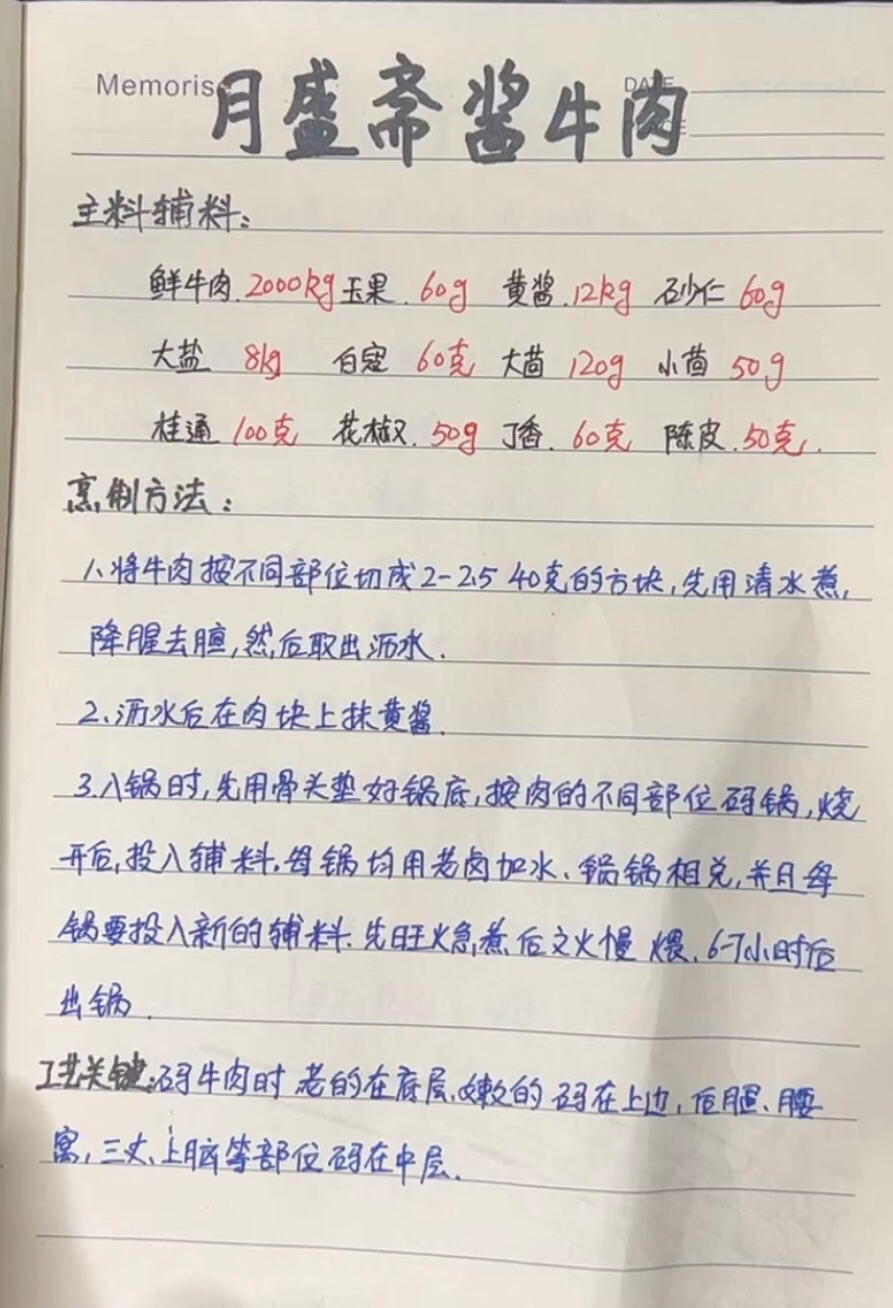 Memoris
DATE
月盛斋酱牛肉
主料辅料:
鲜牛肉.2000kg 玉果.60g 黄酱.12kg 砂仁 60g
大盐 8kg 白寇 60克 大茴 120g 小茴 50g
桂通 100克 花椒.50g 丁香.60克 陈皮.50克.
烹制方法:
1、将牛肉按不同部位切成2-2.5 40克的方块,先用清水煮,
降腥去膻,然后取出沥水.
2、沥水后在肉块上抹黄酱.
3.入锅时,先用骨头垫好锅底,按肉的不同部位码锅,烧
开后,投入辅料.每锅均用老卤加水、锅锅相兑,并且每
锅要投入新的辅料.先旺火急煮后文火慢煨、6-7小时后
出锅.
工艺关键:码牛肉时老的在底层.嫩的码在上边,后腿、腰
窝,三丈、上脑等部位码在中层.